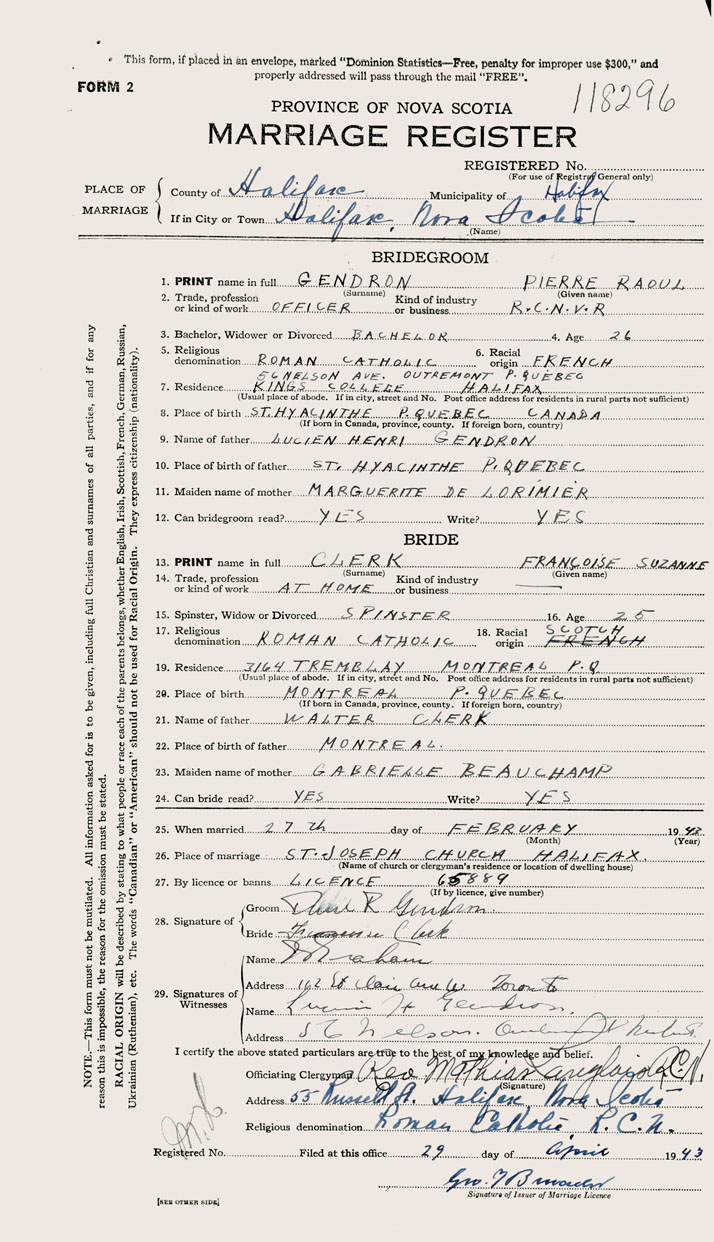 This form, if placed in an envelope, marked "Dominion Statistics—Free, penalty for improper use $300," and
properly addressed will pass through the mail "FREE".
FORM 2
118296
PROVINCE OF NOVA SCOTIA
MARRIAGE REGISTER
REGISTERED No.
(For use of Registrar General only)
PLACE OF MARRIAGE
County of Halifax Municipality of Halifax
If in City or Town Halifax, Nova Scotia
(Name)
BRIDEGROOM
1. PRINT name in full GENDRON PIERRE RAOUL
(Surname) (Given name)
2. Trade, profession or kind of work OFFICER Kind of industry or business R.C.N.V.R
3. Bachelor, Widower or Divorced BACHELOR 4. Age 26
5. Religious denomination ROMAN CATHOLIC 6. Racial origin FRENCH
56 NELSON AVE. OUTREMONT P. QUEBEC
7. Residence KINGS COLLEGE HALIFAX
(Usual place of abode. If in city, street and No. Post office address for residents in rural parts not sufficient)
8. Place of birth ST. HYACINTHE P. QUEBEC CANADA
(If born in Canada, province, county. If foreign born, country)
9. Name of father LUCIEN HENRI GENDRON
10. Place of birth of father ST. HYACINTHE P. QUEBEC
11. Maiden name of mother MARGUERITE DE LORIMIER
12. Can bridegroom read? YES Write? YES
BRIDE
13. PRINT name in full CLERK FRANÇOISE SUZANNE
(Surname) (Given name)
14. Trade, profession or kind of work AT HOME Kind of industry or business
15. Spinster, Widow or Divorced SPINSTER 16. Age 25
17. Religious denomination ROMAN CATHOLIC 18. Racial origin SCOTCH FRENCH
19. Residence 3164 TREMBLAY MONTREAL P.Q
(Usual place of abode. If in city, street and No. Post office address for residents in rural parts not sufficient)
20. Place of birth MONTREAL P. QUEBEC
(If born in Canada, province, county. If foreign born, country)
21. Name of father WALTER CLERK
22. Place of birth of father MONTREAL.
23. Maiden name of mother GABRIELLE BEAUCHAMP
24. Can bride read? YES Write? YES
25. When married 27th day of FEBRUARY 1943
(Month) (Year)
26. Place of marriage ST. JOSEPH CHURCH HALIFAX.
(Name of church or clergyman's residence or location of dwelling house)
27. By licence or banns LICENCE 65889
(If by licence, give number)
28. Signature of
Groom Pierre R Gendron.
Bride Françoise Clerk
29. Signatures of Witnesses
Name Graham
Address 162 St Clair Ave W. Toronto
Name Lucien H Gendron.
Address 56 Nelson.
I certify the above stated particulars are true to the best of my knowledge and belief.
Officiating Clergyman Rev Mathias Langlois R.C.N.
(Signature)
Address 55 Russell St. Halifax, Nova Scotia
Religious denomination Roman Catholic R.C.N.
Registered No. Filed at this office 29 day of April 1943
Signature of Issuer of Marriage Licence
[SEE OTHER SIDE]
NOTE.—This form must not be mutilated. All information asked for is to be given, including full Christian and surnames of all parties, and if for any
reason this is impossible, the reason for the omission must be stated.
RACIAL ORIGIN will be described by stating to what people or race each of the parents belongs, whether English, Irish, Scottish, French, German, Russian,
Ukrainian (Ruthenian), etc. The words "Canadian" or "American" should not be used for Racial Origin. They express citizenship (nationality).